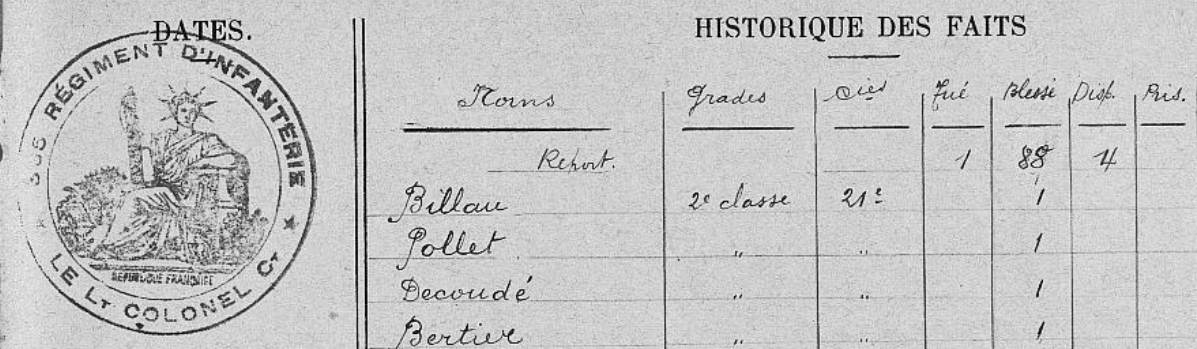 DATES.
HISTORIQUE DES FAITS
RÉGIMENT D'INFANTERIE
LE LT COLONEL CT
RÉPUBLIQUE FRANÇAISE
Noms Grades Cies Tué Blessé Disp. Pris.
Report. 1 88 4
Billau 2e classe 21e 1
Pollet " " 1
Decoudé " " 1
Bertier " " 1